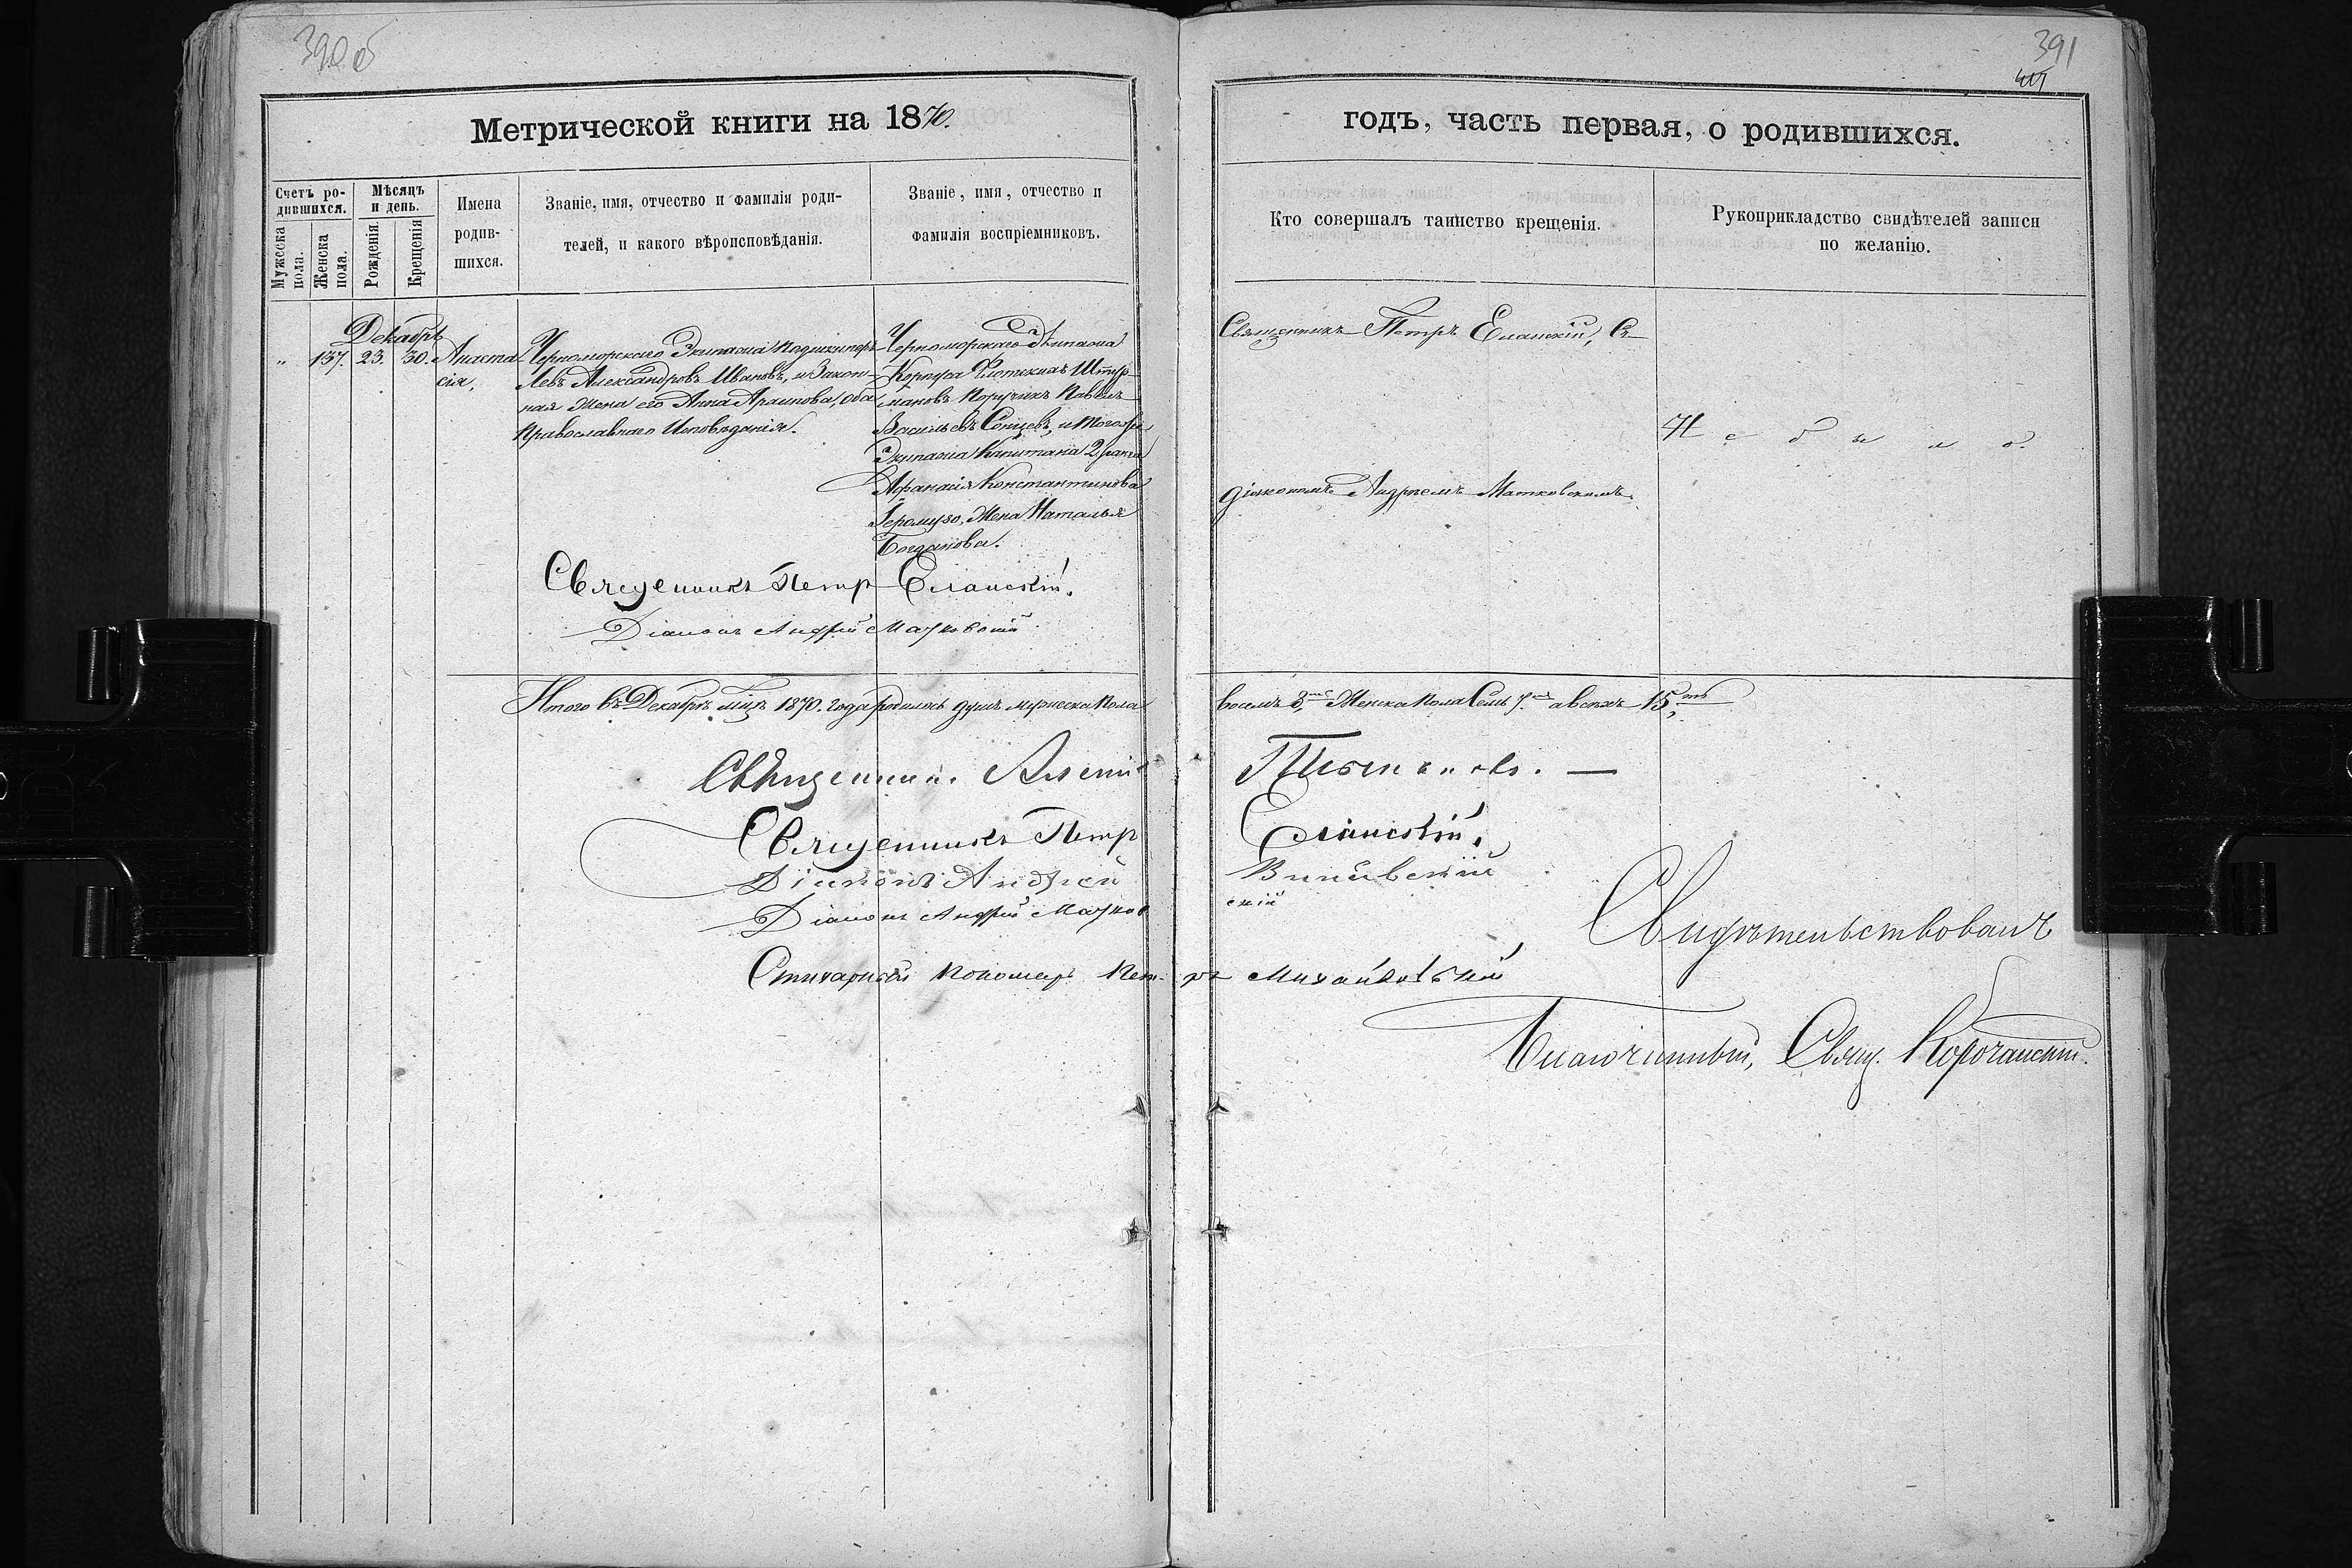 390 об
391
Метрической книги на 1870.
годъ, часть первая, о родившихся.
Счетъ родившихся.
Мужеска пола.
Женска пола.
Мѣсяцъ и день.
Рожденія.
Крещенія
Имена родив-
шихся.
Званіе, имя, отчество и фамилія роди-
телей, и какого вѣроисповѣданія.
Званіе, имя, отчество и
фамилія воспріемниковъ.
Кто совершалъ таинство крещенія.
Рукоприкладство свидѣтелей записи
по желанію.
Декабрь
„ 137. 23. 30.
Анаста
сія.
Черноморскаго Экипажа подшкиперъ
Левъ Александровъ Ивановъ, и Закон-
ная Жена его Анна Архипова, оба
Православнаго Исповѣданія.
Черноморскаго Экипажа
Корпуса Флотскихъ Штур
мановъ Поручикъ Павелъ
Васильевъ Сонцевъ, и Тогоже
Экипажа Капитана 2 ранга
Афанасія Константинова
Іеромузо, Жена Наталья
Богданова.
Священникъ Петръ Еланскій, Съ
діакономъ Андреемъ Матковскимъ.
Н е б ы л о.
Священникъ Петр Еланскій.
Діаконъ Андрей Матковскій
Итого въ Декабрѣ мцѣ 1870. года родилось душъ мужеска пола
восемь 8, Женска пола Семь 7. а всехъ 15,
Священникъ
Священникъ Петр Еланскій.
Діаконъ Андрей
Діаконъ Андрей Матков
скій
Стихарный пономарь Пет-ръ Михайловскій
Свидѣтельствовалъ
Благочинный, Свящ. Корочанскій.